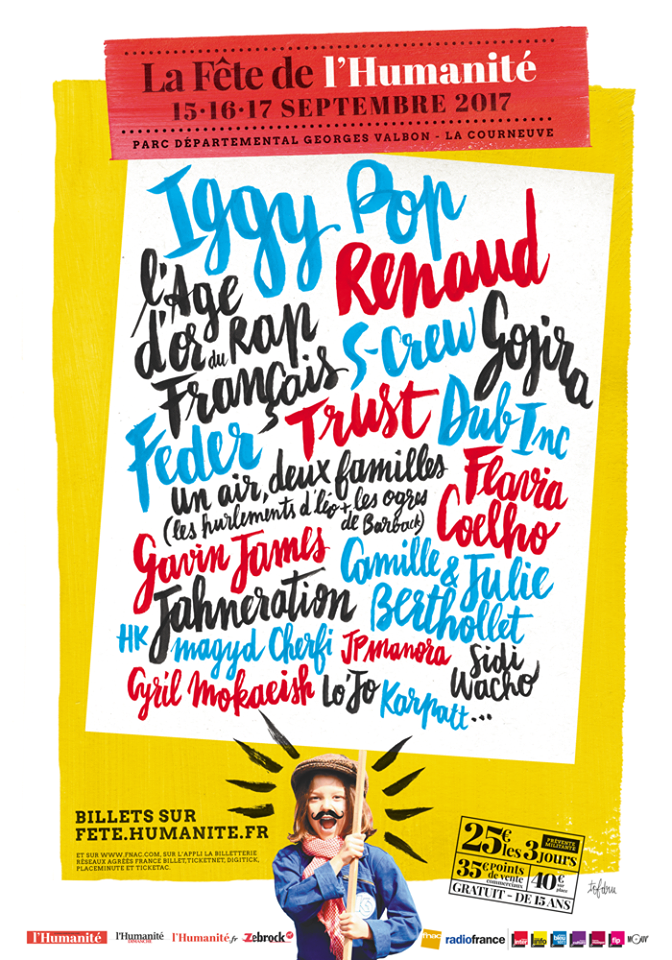 La Fête de l'Humanité
15·16·17 SEPTEMBRE 2017
PARC DÉPARTEMENTAL GEORGES VALBON - LA COURNEUVE
Iggy Pop
Renaud
l'Age
d'or du Rap
Français
S-Crew
Gojira
Feder
Trust
Dub Inc
un air, deux familles
(les hurlements d'léo + les ogres
de Barback)
Flavia
Coelho
Gavin James
Camille & Julie
Berthollet
Jahneration
HK
magyd Cherfi
JP manora
Sidi
Wacho
Cyril Mokaeish
Lo'Jo
Karpatt...
BILLETS SUR
FETE.HUMANITE.FR
ET SUR WWW.FNAC.COM, SUR L'APPLI LA BILLETTERIE
RÉSEAUX AGRÉÉS FRANCE BILLET, TICKETNET, DIGITICK,
PLACEMINUTE ET TICKETAC.
25€ les 3 jours
PRÉVENTE
MILITANTE
35€ points
de vente
commerciaux
40€ sur
place
GRATUIT - DE 15 ANS
l'Humanité
l'Humanité
DIMANCHE
l'Humanité.fr
Zebrock
fnac
radiofrance
inter
info
bleu
fip